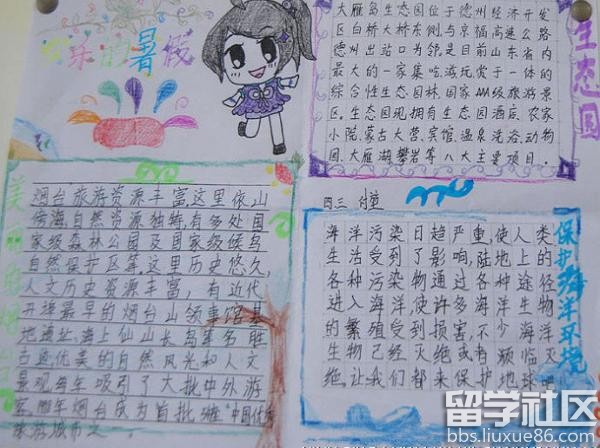 乐的暑假
大雁岛生态园位于德州经济开发
区白桥大桥东侧与京福高速公路
德州出站口为邻是目前山东省内
最大的一家集吃游玩赏于一体的
综合性生态园林国家AAA级旅游景
区。生态园现拥有生态园酒店、农家
小院、蒙古大营、宾馆、温泉洗浴、动物
园、大雁湖、攀岩等八大主要项目.
生态园
四三
美丽的烟台
烟台旅游资源丰富,这里依山
傍海,自然资源独特,有多处国
家级森林公园及国家级候鸟
自然保护区等,这里历史悠久,
人文历史资源丰富,有近代
开埠最早的烟台山领事馆基
地遗址、海上仙山长岛等多胜
古迹优美的自然风光和人文
景观每年吸引了大批中外游
客.烟台成为首批"中国优秀
旅游城市之
海洋污染日趋严重,使人类
生活受到了影响,陆地上的
各种污染物通过各种途径
进入海洋,使许多海洋生物
的繁殖受到损害,不少海洋
生物已经灭绝或有濒临灭
绝.让我们都来保护地球吧
保护海洋环境
留学社区
bbs.liuxue86.com